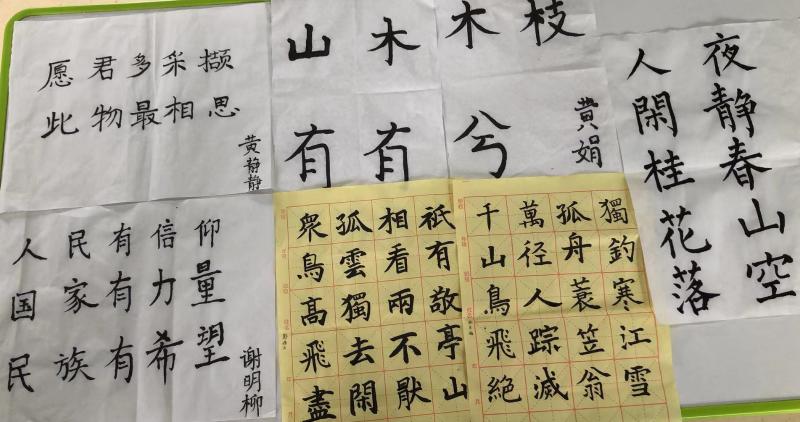 愿君多采撷
此物最相思
黄静静
山木木枝
有有兮
黄娟
人閑桂花落
夜静春山空
人民有信仰
国家有力量
民族有希望
谢明柳
衆鳥高飛盡
孤雲獨去閑
相看兩不厭
衹有敬亭山
千山鳥飛絶
萬径人踪滅
孤舟蓑笠翁
獨釣寒江雪